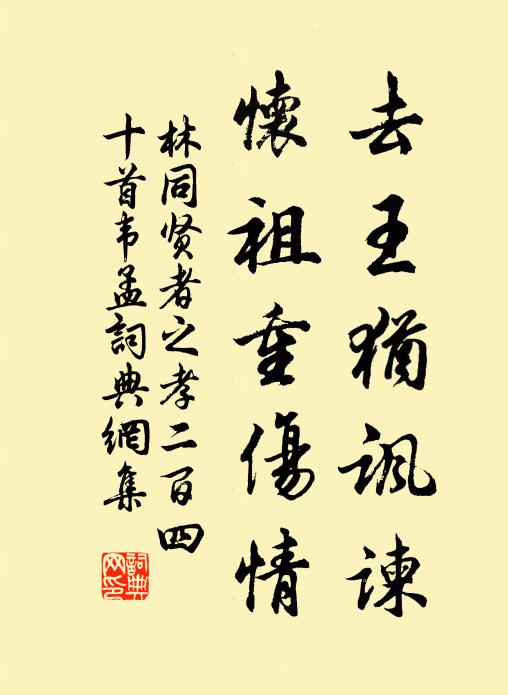 去王猶諷諫
懷祖重傷情
林同贤者之孝二百四
十首韦孟詞典網集
詞典网印